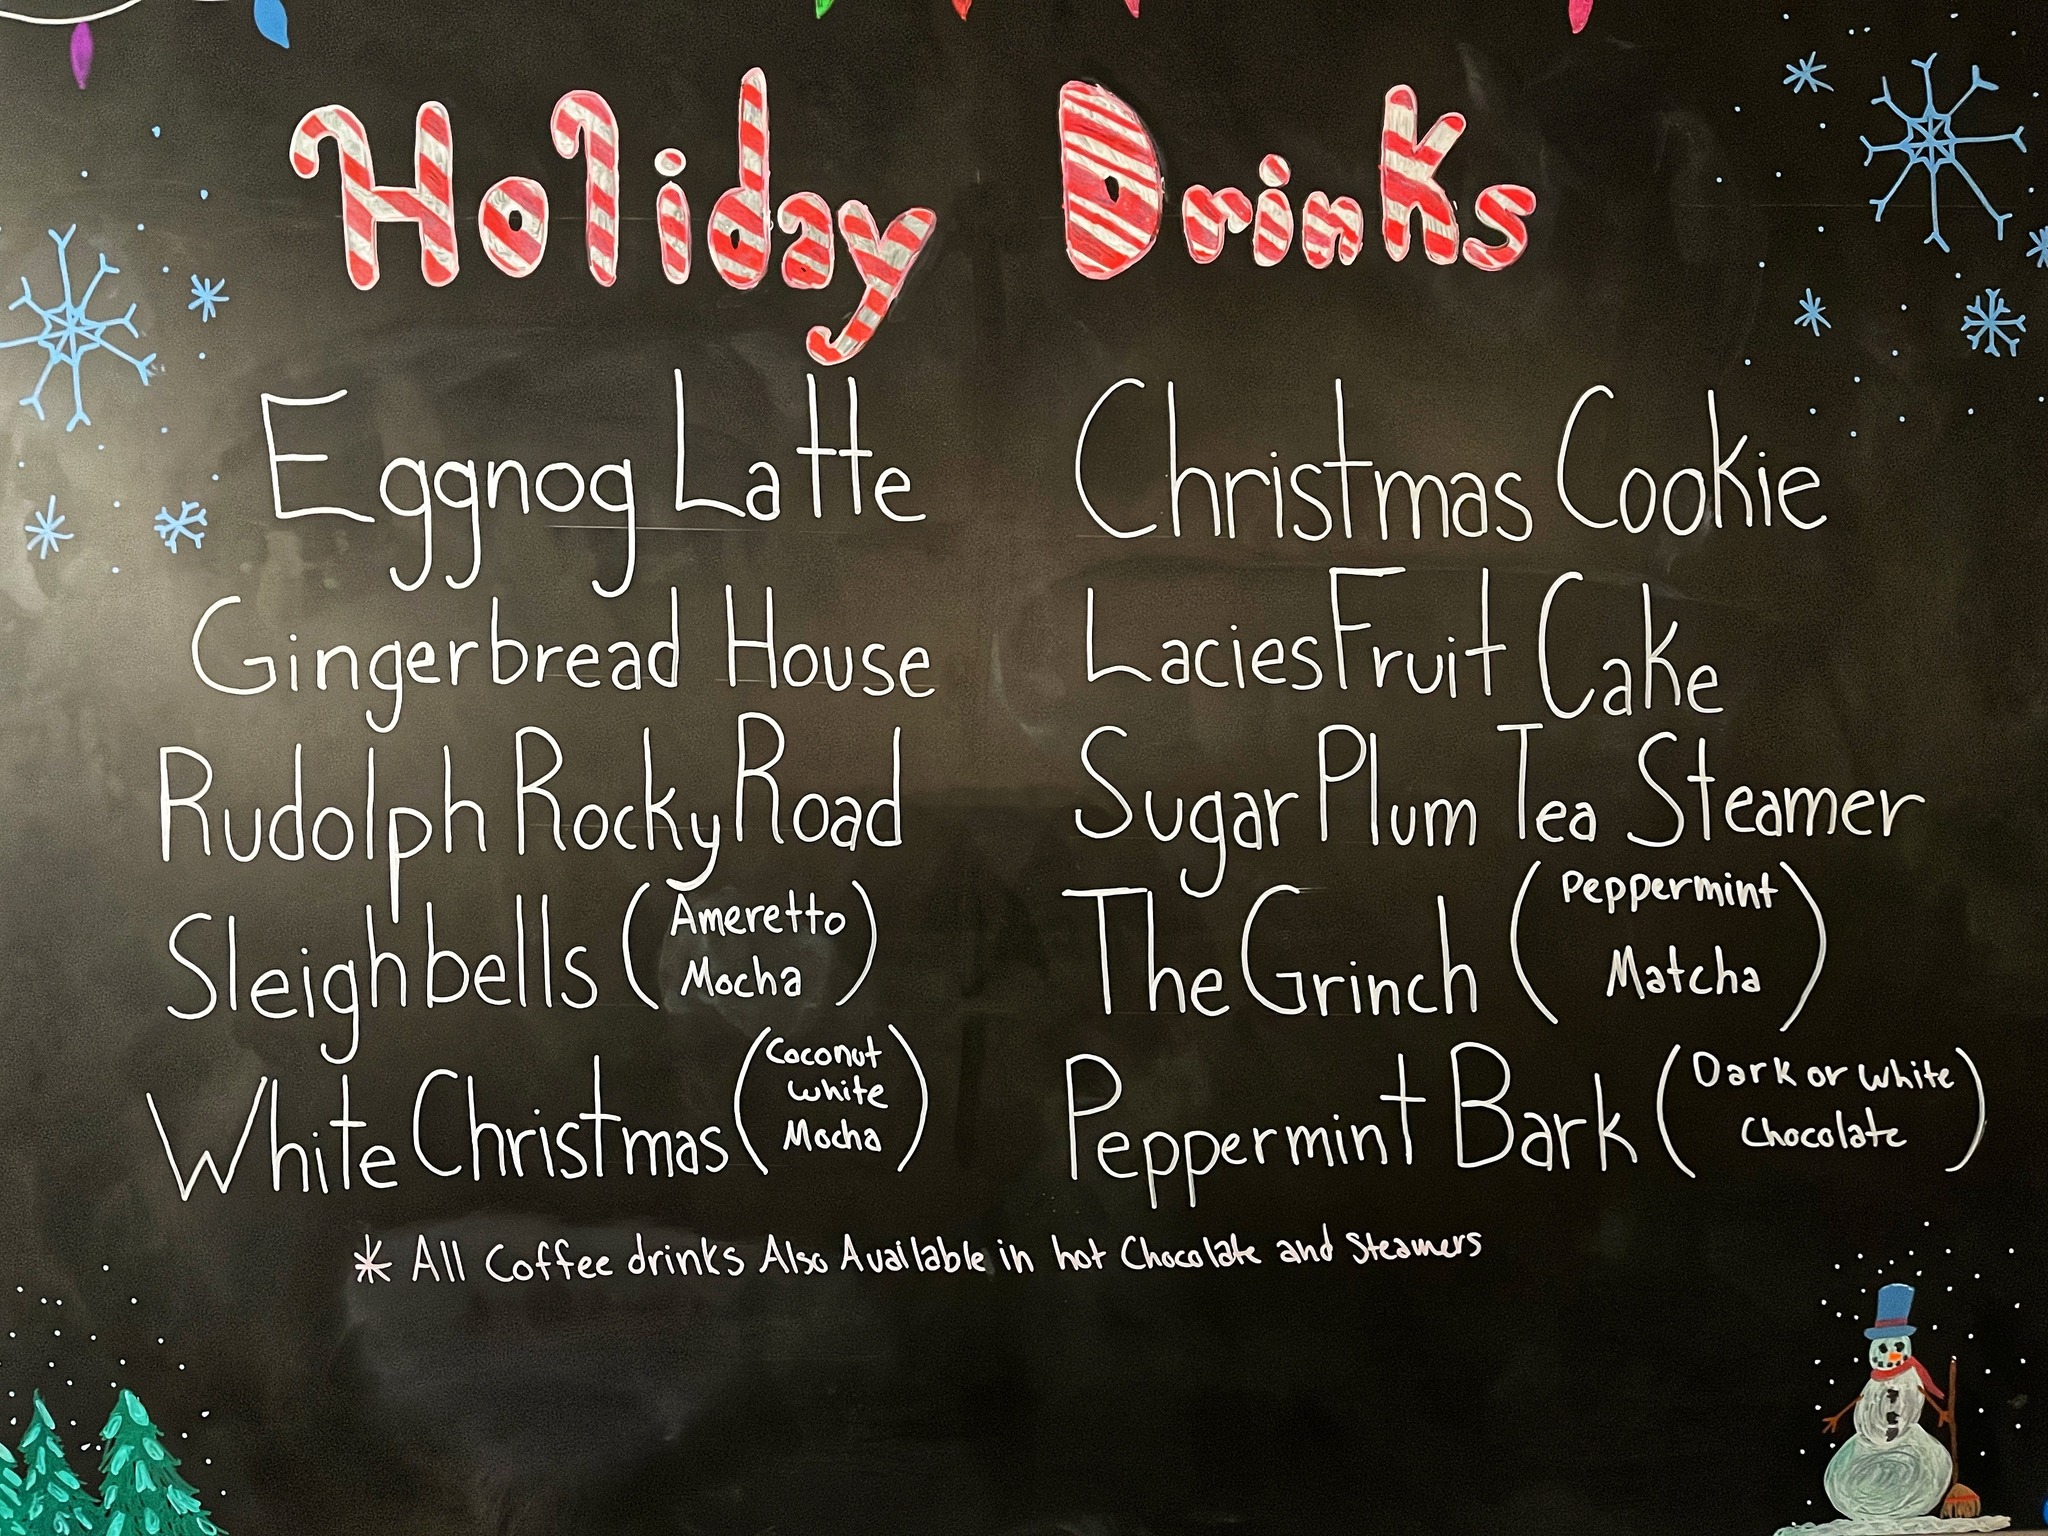 Holiday Drinks
Eggnog Latte
Gingerbread House
Rudolph Rocky Road
Sleighbells (Ameretto
Mocha)
White Christmas (Coconut
White
Mocha)
Christmas Cookie
Lacies Fruit Cake
Sugar Plum Tea Steamer
The Grinch (Peppermint
Matcha)
Peppermint Bark (Dark or White
Chocolate)
* All Coffee drinks Also Available in hot Chocolate and Steamers